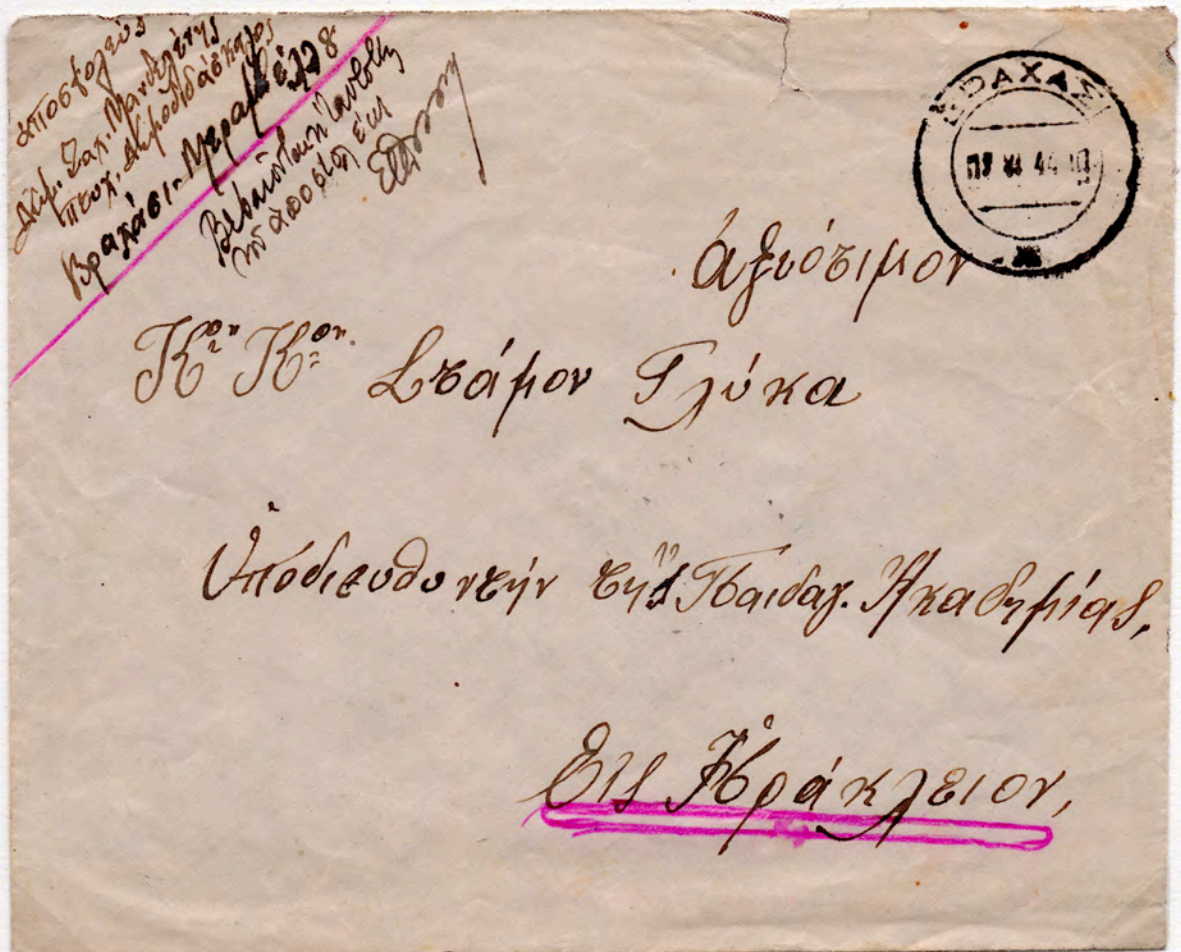 ἀποστολεύς
Δημ. Σαλ. Μανδελένης
πτυχ. Δημοδιδάσκαλος
Βραχάσι-Μεραμβέλλου
ΒΡΑΧΑΣΙ
44
ἀξιότιμον
Κον Κον Στάμον Γλύκα
Ὑποδιευθυντήν τῆς Παιδαγ. Ἀκαδημίας,
Εἰς Ἡράκλειον,